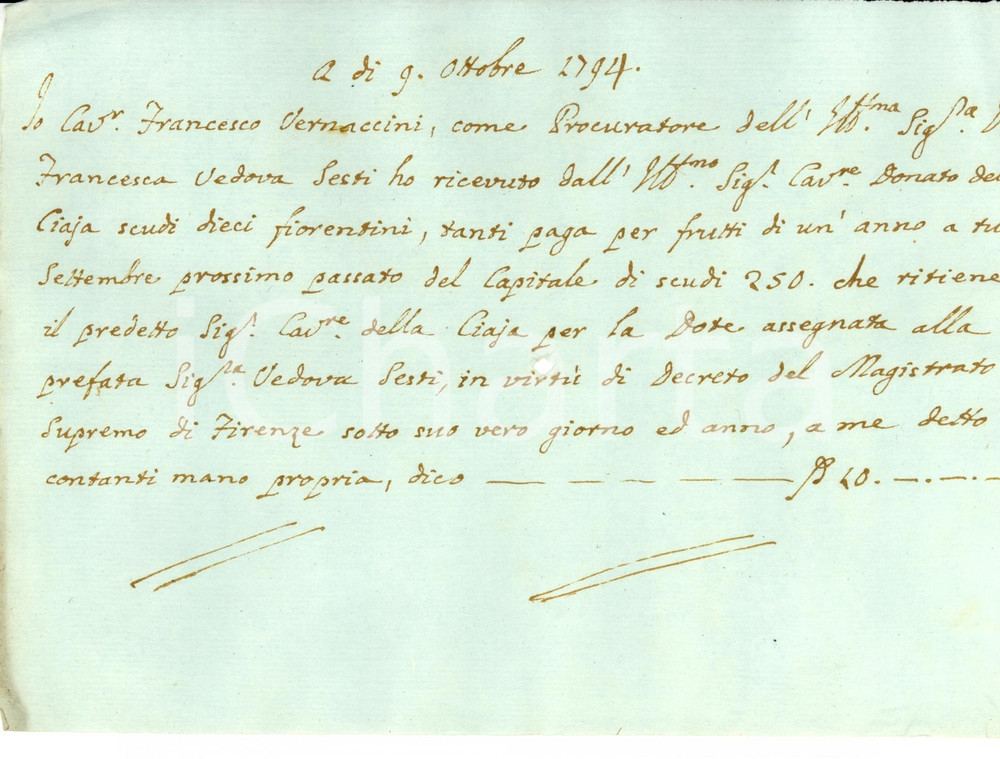 A di 9. Ottobre 1794.
Io Cavr. Francesco Vernaccini, come Procuratore dell' Illma. Sigra.
Francesca Vedova Sesti ho ricevuto dall' Illmo. Sigr. Cavre. Donato del
Ciaja scudi dieci fiorentini, tanti paga per frutti di un' anno a tu
Settembre prossimo passato del Capitale di scudi 250. che ritiene
il predetto Sigr. Cavre. della Ciaja per la Dote assegnata alla
prefata Sigra. Vedova Sesti, in virtù di Decreto del Magistrato
Supremo di Firenze sotto suo vero giorno ed anno, a me detto
contanti mano propria, dico — — — — — 10. — . — . —
iCharta